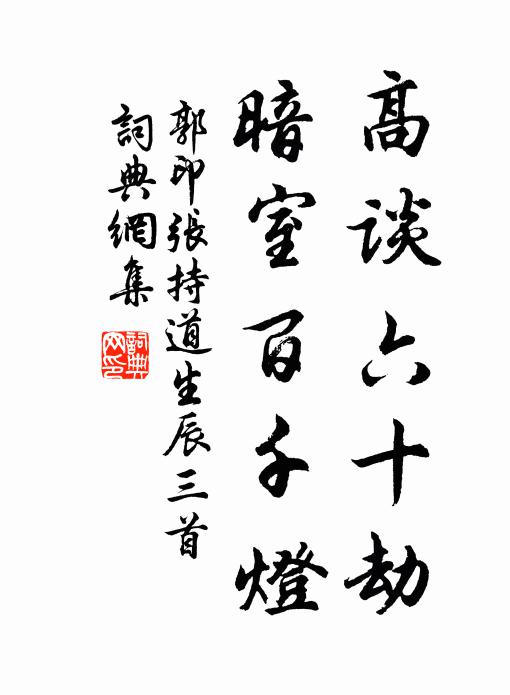 高談六十劫
暗室百千燈
郭印張持道生辰三首
詞典網集
詞典網印